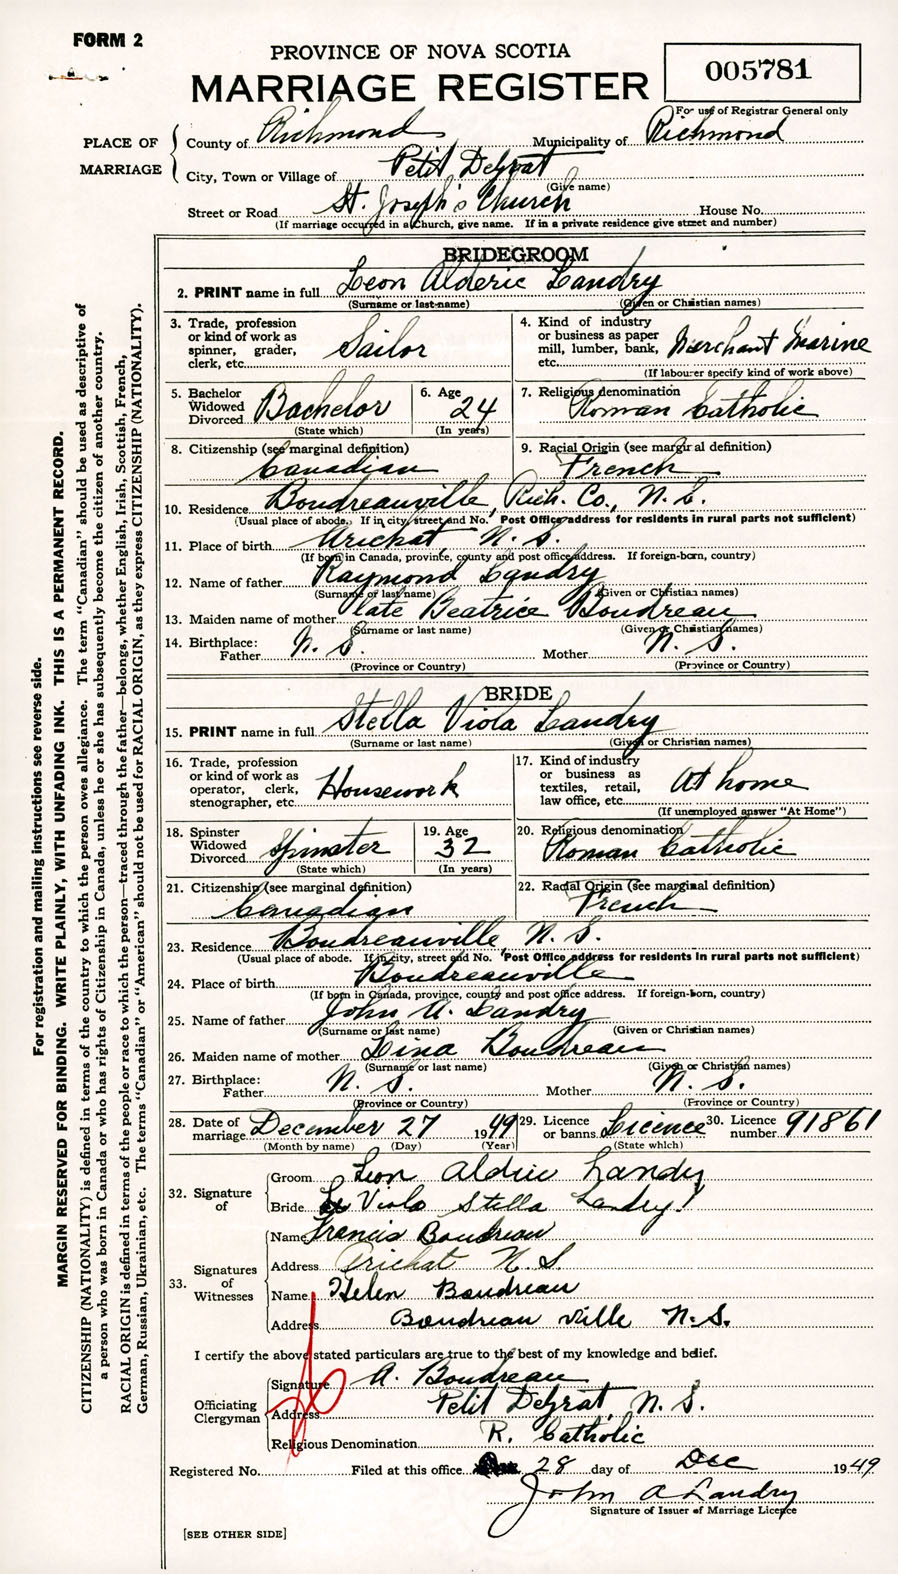 FORM 2
PROVINCE OF NOVA SCOTIA
MARRIAGE REGISTER
005781
For use of Registrar General only
PLACE OF MARRIAGE
County of Richmond Municipality of Richmond
City, Town or Village of Petit DeGrat
(Give name)
Street or Road St. Joseph's Church House No.
(If marriage occurred in a Church, give name. If in a private residence give street and number)
BRIDEGROOM
2. PRINT name in full Leon Alderic Landry
(Surname or last name) (Given or Christian names)
3. Trade, profession or kind of work as spinner, grader, clerk, etc. Sailor
4. Kind of industry or business as paper mill, lumber, bank, etc. Merchant Marine
(If labourer specify kind of work above)
5. Bachelor Widowed Divorced Bachelor
(State which)
6. Age 24
(In years)
7. Religious denomination Roman Catholic
8. Citizenship (see marginal definition) Canadian
9. Racial Origin (see marginal definition) French
10. Residence Boudreauville, Rich. Co., N. S.
(Usual place of abode. If in city, street and No. Post Office address for residents in rural parts not sufficient)
11. Place of birth Arichat N. S.
(If born in Canada, province, county and post office address. If foreign-born, country)
12. Name of father Raymond Landry
(Surname or last name) (Given or Christian names)
13. Maiden name of mother late Beatrice Boudreau
(Surname or last name) (Given or Christian names)
14. Birthplace: Father N. S. Mother N. S.
(Province or Country) (Province or Country)
BRIDE
15. PRINT name in full Stella Viola Landry
(Surname or last name) (Given or Christian names)
16. Trade, profession or kind of work as operator, clerk, stenographer, etc. Housework
17. Kind of industry or business as textiles, retail, law office, etc. At home
(If unemployed answer "At Home")
18. Spinster Widowed Divorced Spinster
(State which)
19. Age 32
(In years)
20. Religious denomination Roman Catholic
21. Citizenship (see marginal definition) Canadian
22. Racial Origin (see marginal definition) French
23. Residence Boudreauville, N. S.
(Usual place of abode. If in city, street and No. Post Office address for residents in rural parts not sufficient)
24. Place of birth Boudreauville
(If born in Canada, province, county and post office address. If foreign-born, country)
25. Name of father John A. Landry
(Surname or last name) (Given or Christian names)
26. Maiden name of mother Lina Boudreau
(Surname or last name) (Given or Christian names)
27. Birthplace: Father N. S. Mother N. S.
(Province or Country) (Province or Country)
28. Date of marriage December 27 1949
(Month by name) (Day) (Year)
29. Licence or banns Licence
(State which)
30. Licence number 91861
32. Signature of
Groom Leon Aldric Landry
Bride Viola Stella Landry
33. Signatures of Witnesses
Name Francis Boudreau
Address Arichat N. S
Name Helen Boudreau
Address Boudreau ville N. S.
I certify the above stated particulars are true to the best of my knowledge and belief.
Officiating Clergyman
Signature A. Boudreau
Address Petit DeGrat, N. S.
Religious Denomination R. Catholic
Registered No. Filed at this office 28 day of Dec 1949
John A Landry
Signature of Issuer of Marriage Licence
[SEE OTHER SIDE]
For registration and mailing instructions see reverse side.
MARGIN RESERVED FOR BINDING. WRITE PLAINLY, WITH UNFADING INK. THIS IS A PERMANENT RECORD.
CITIZENSHIP (NATIONALITY) is defined in terms of the country to which the person owes allegiance. The term "Canadian" should be used as descriptive of
a person who was born in Canada or who has rights of Citizenship in Canada, unless he or she has subsequently become the citizen of another country.
RACIAL ORIGIN is defined in terms of the people or race to which the person—traced through the father—belongs, whether English, Irish, Scottish, French,
German, Russian, Ukrainian, etc. The terms "Canadian" or "American" should not be used for RACIAL ORIGIN, as they express CITIZENSHIP (NATIONALITY).